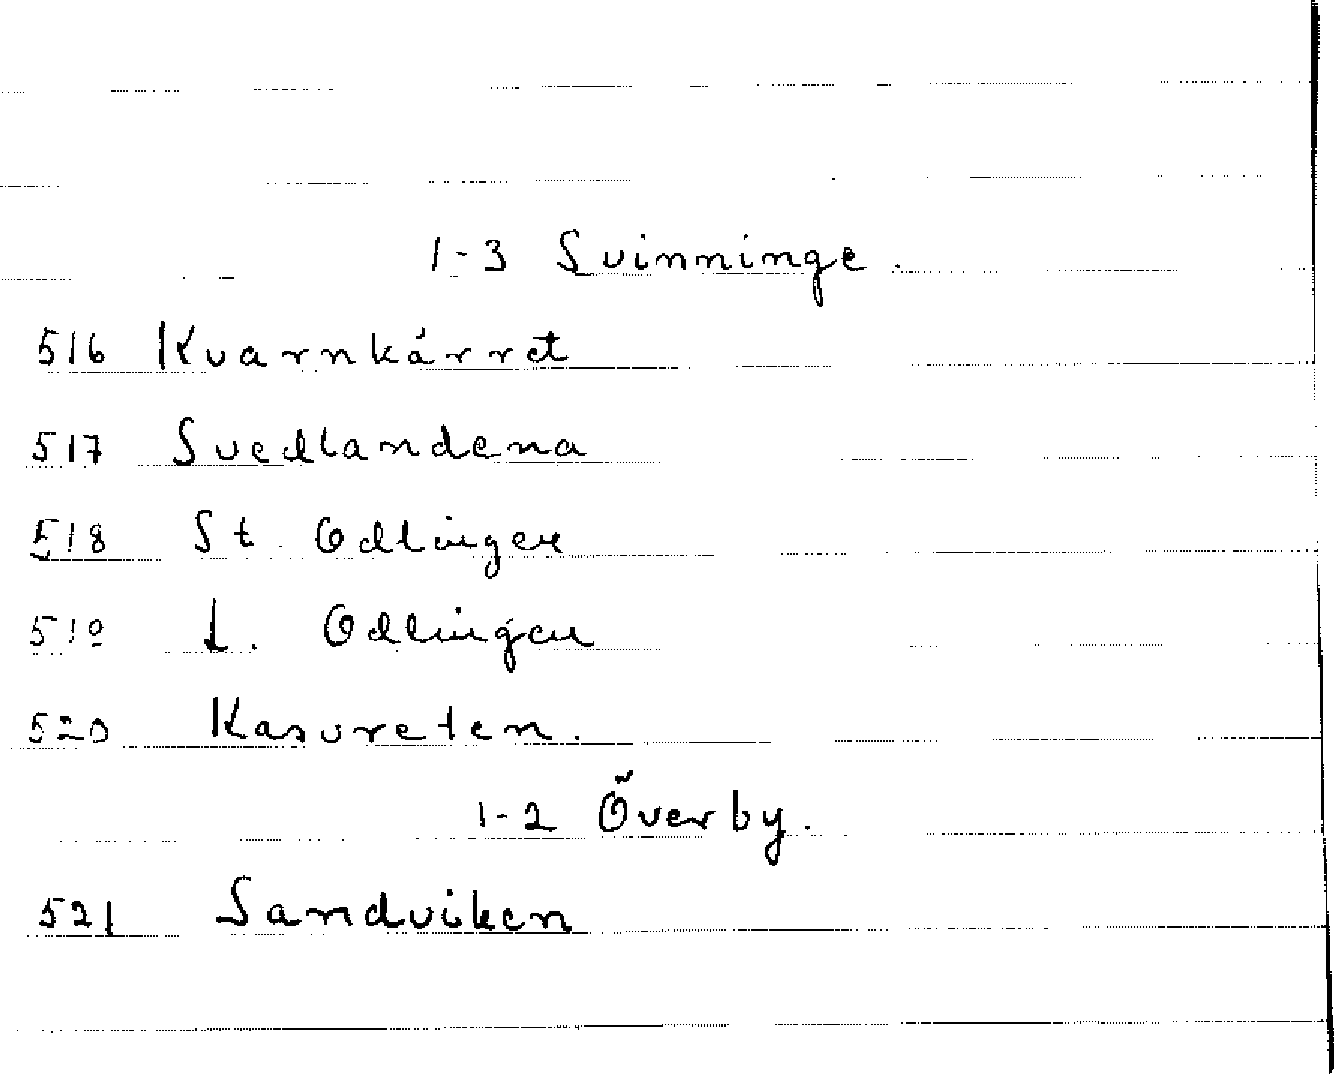 1-3 Svinninge.
516 Kvarnkärret
517 Svedlandena
518 St. Odlingen
519 L. Odlingen
520 Kasvreten.
1-2 Överby.
521 Sandviken